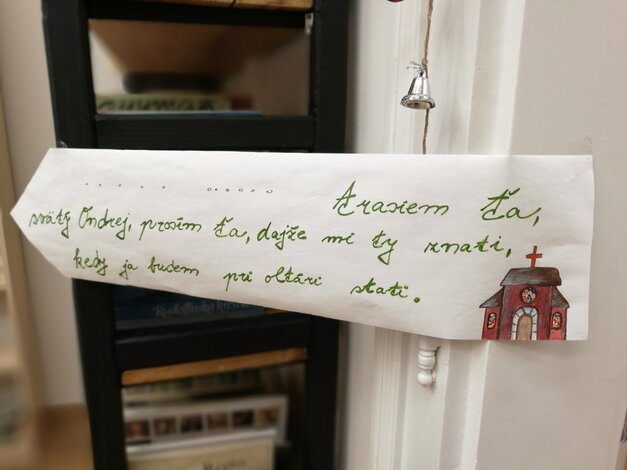 ....... ....... Trasiem Ťa,
svätý Ondrej, prosím ťa, dajže mi ty znati,
kedy ja budem pri oltári stati.